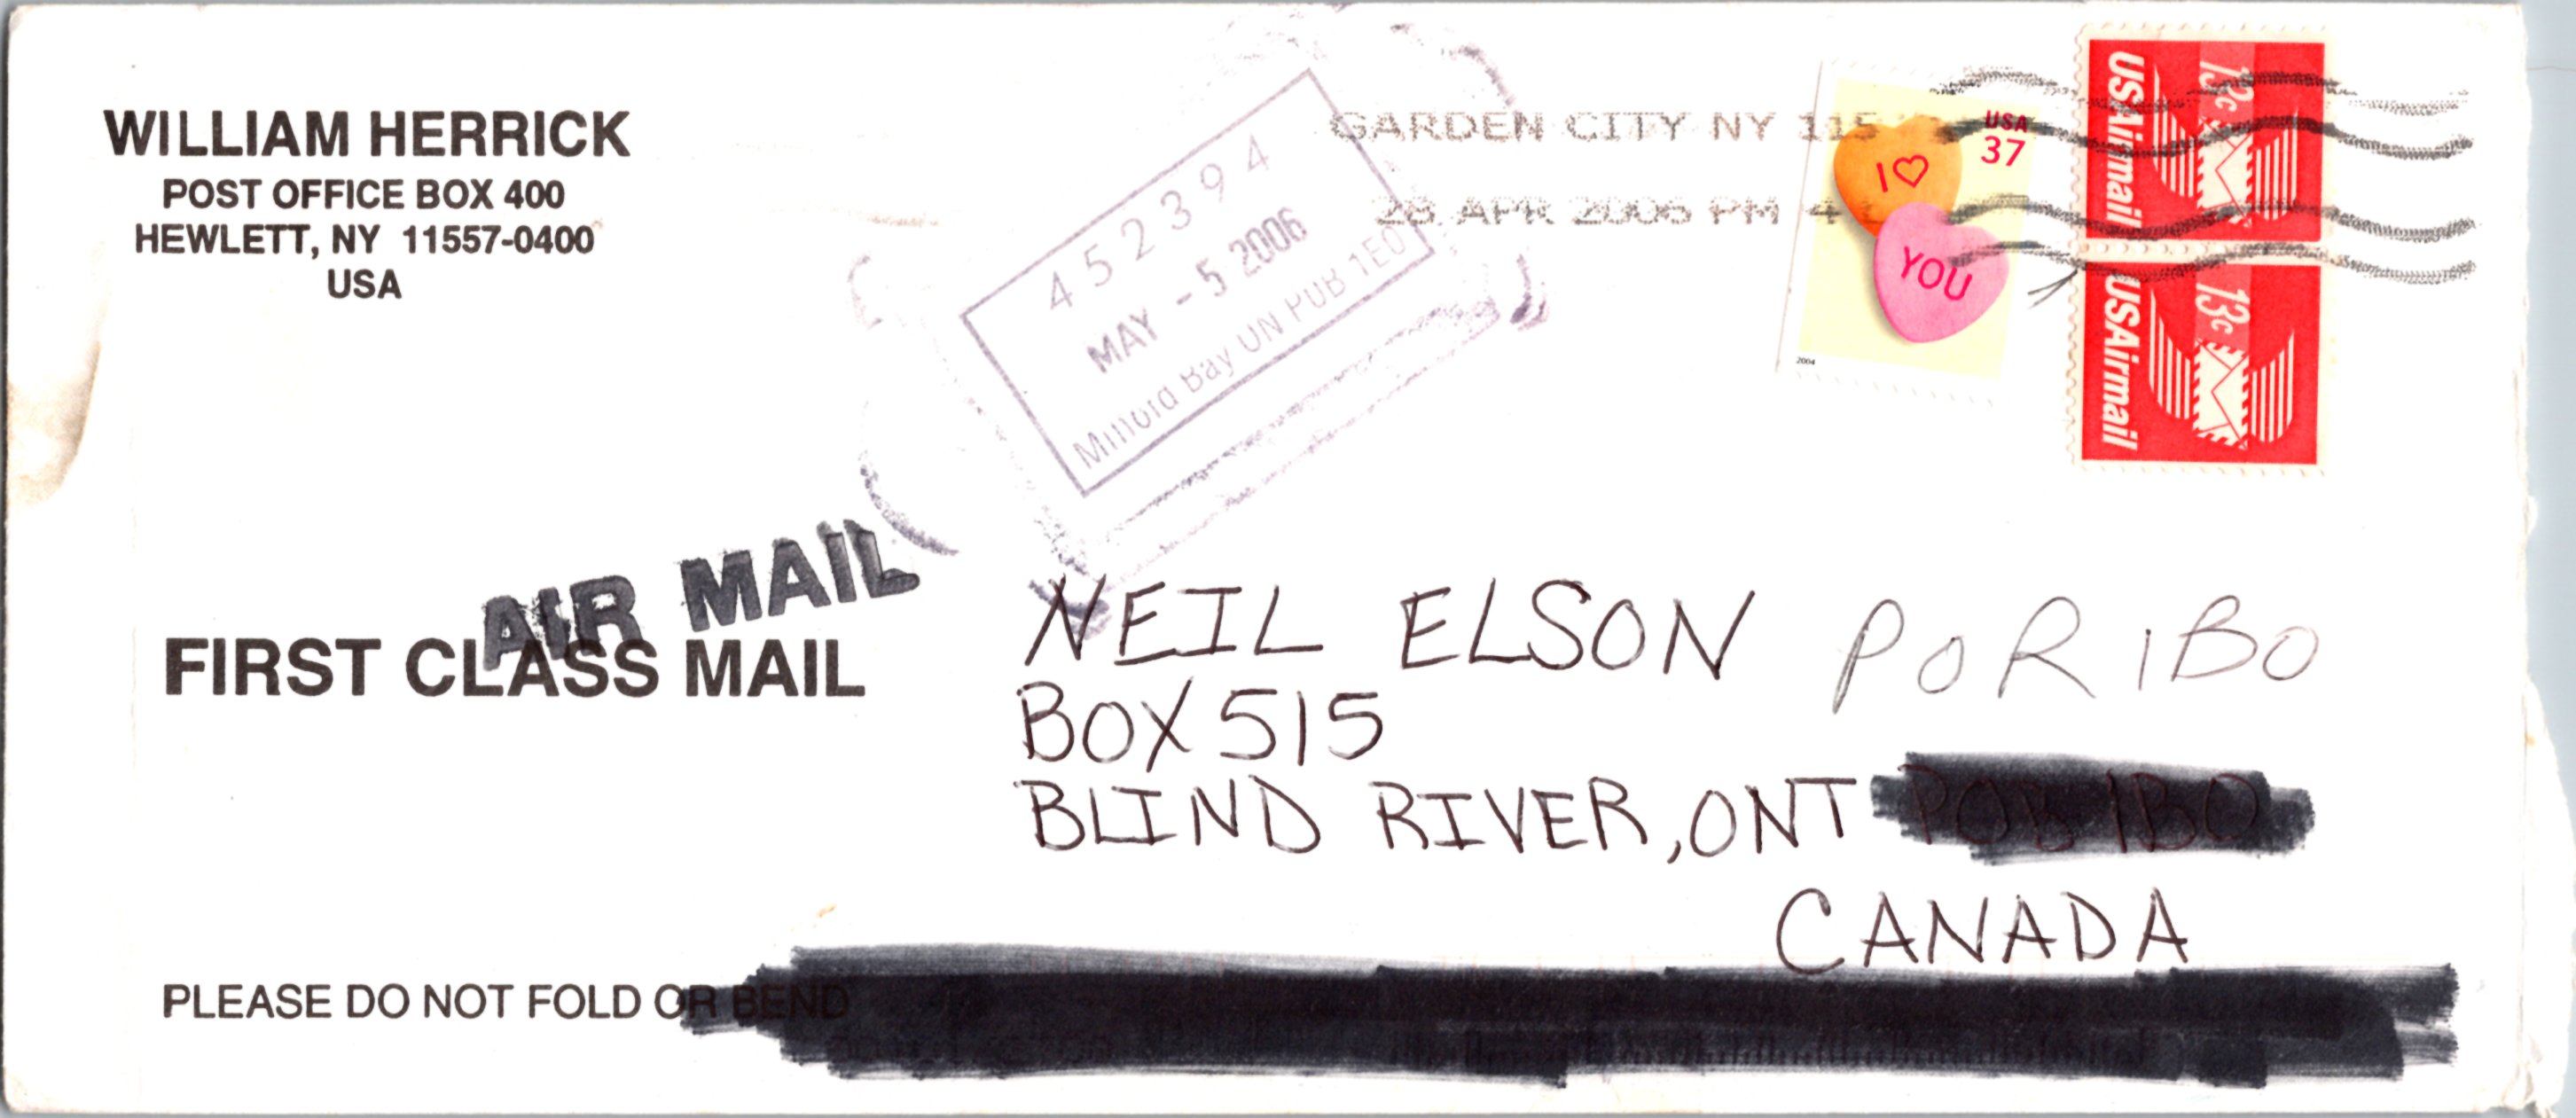 WILLIAM HERRICK
POST OFFICE BOX 400
HEWLETT, NY 11557-0400
USA
452394
MAY - 5 2006
Milford Bay ON P0B 1E0
GARDEN CITY NY 115
28 APR 2006 PM 4
I ♡
YOU
USA
37
2004
13c
USAirmail
13c
USAirmail
AIR MAIL
FIRST CLASS MAIL
NEIL ELSON P0R 1B0
BOX 515
BLIND RIVER, ONT P0B 1B0
CANADA
PLEASE DO NOT FOLD OR BEND